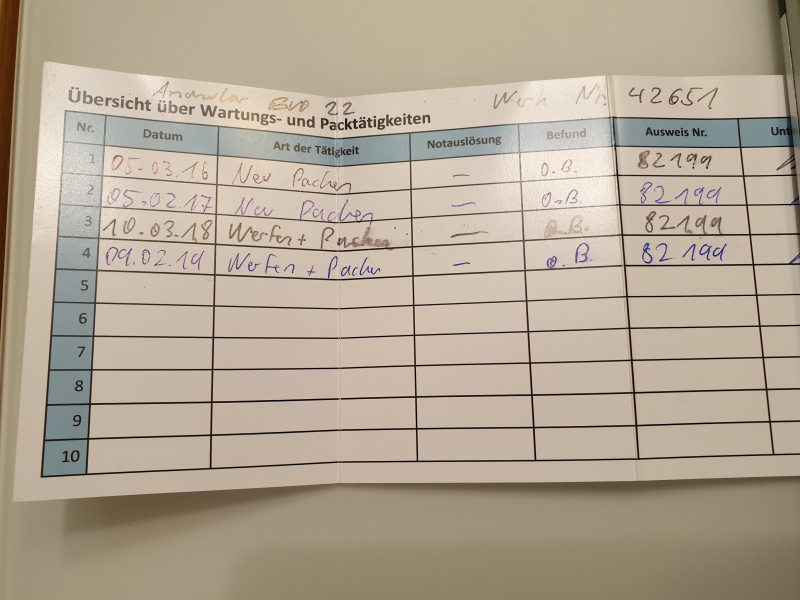 Annular Evo 22 Werk Nr. 42651
Übersicht über Wartungs- und Packtätigkeiten
Nr. Datum Art der Tätigkeit Notauslösung Befund Ausweis Nr.
1 05.03.16 Neu Packen — o.B. 82199
2 05.02.17 Neu Packen — o.B. 82199
3 10.03.18 Werfen + Packen — o.B. 82199
4 09.02.19 Werfen + Packen — o.B. 82199
5
6
7
8
9
10